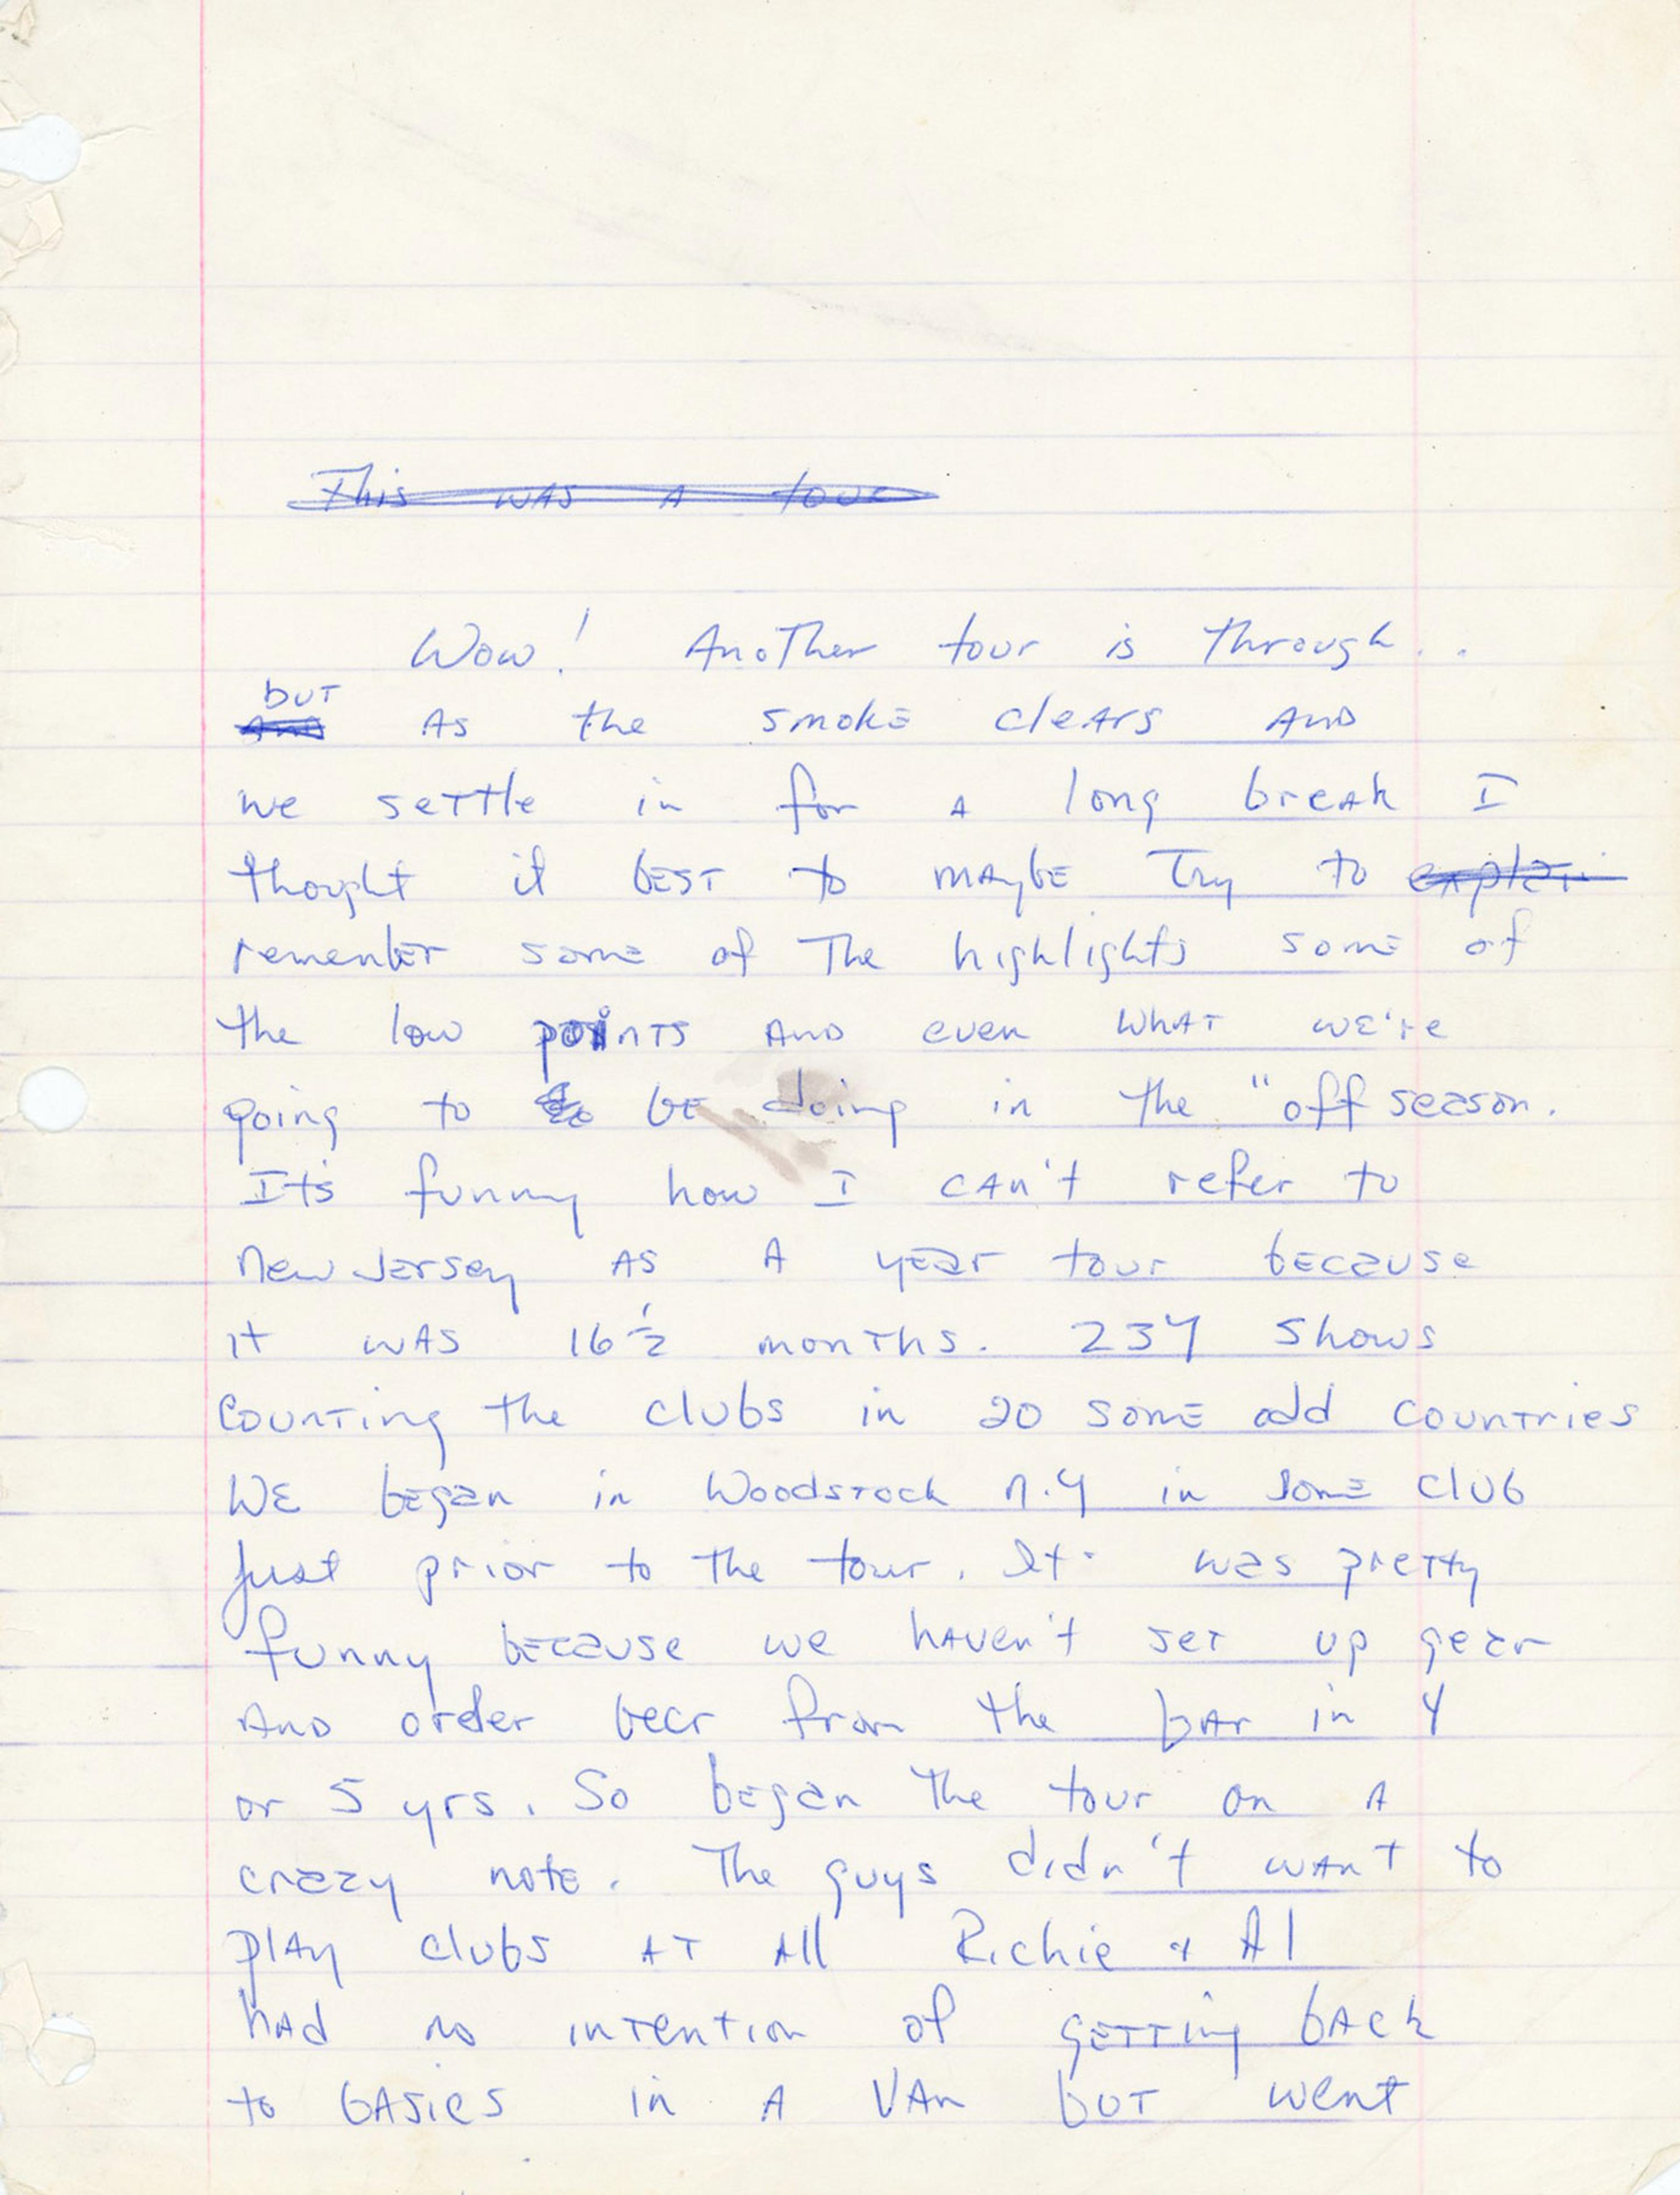 This was a tour
Wow! Another tour is through..
but
And as the smoke clears and
we settle in for a long break I
thought it best to maybe try to explai
remember some of the highlights some of
the low points and even what we're
going to be doing in the "off season.
It's funny how I can't refer to
New Jersey as a year tour because
it was 16 1/2 months. 237 shows
counting the clubs in 20 some odd countries
We began in Woodstock N.Y in some club
just prior to the tour. It was pretty
funny because we haven't set up gear
and order beer from the bar in 4
or 5 yrs. So began the tour on a
crazy note. The guys didn't want to
play clubs at all Richie + Al
had no intention of getting back
to basics in a van but went